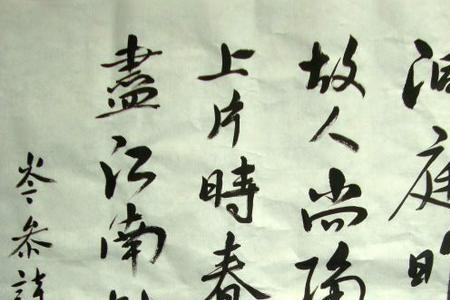 洞庭
故人尚隔
上片時春
盡江南
岑参詩